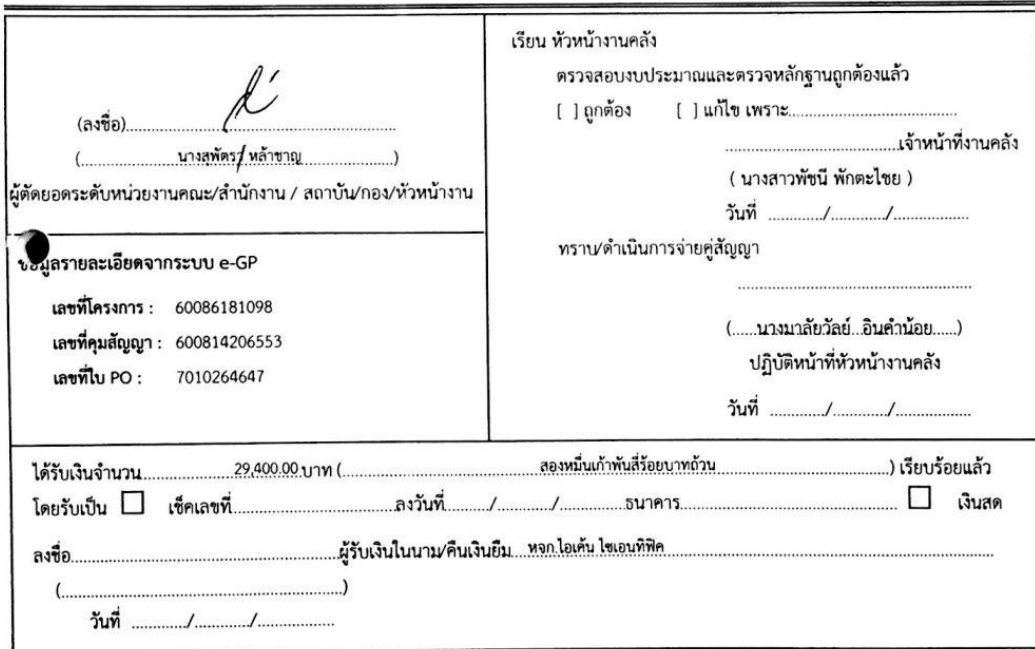 (ลงชื่อ)................................................
(............นางสุพัตรา หล้าชาญ............)
ผู้ตัดยอดระดับหน่วยงานคณะ/สำนักงาน / สถาบัน/กอง/หัวหน้างาน
ข้อมูลรายละเอียดจากระบบ e-GP
เลขที่โครงการ : 60086181098
เลขที่คุมสัญญา : 600814206553
เลขที่ใบ PO : 7010264647
เรียน หัวหน้างานคลัง
ตรวจสอบงบประมาณและตรวจหลักฐานถูกต้องแล้ว
[ ] ถูกต้อง [ ] แก้ไข เพราะ........................................
........................................เจ้าหน้าที่งานคลัง
( นางสาวพัชนี พักตะไชย )
วันที่ ............/............/.................
ทราบ/ดำเนินการจ่ายคู่สัญญา
......................................................
(......นางมาลัยวัลย์...อินคำน้อย......)
ปฏิบัติหน้าที่หัวหน้างานคลัง
วันที่ ............/............/.................
ได้รับเงินจำนวน....................29,400.00 บาท (........................สองหมื่นเก้าพันสี่ร้อยบาทถ้วน........................) เรียบร้อยแล้ว
โดยรับเป็น ☐ เช็คเลขที่....................................ลงวันที่........./............/...............ธนาคาร................................................ ☐ เงินสด
ลงชื่อ............................................................ผู้รับเงินในนาม/คืนเงินยืม....หจก.ไอเค้น ไซเอนทิฟิค....................................
(................................................................)
วันที่ ............/............/.................